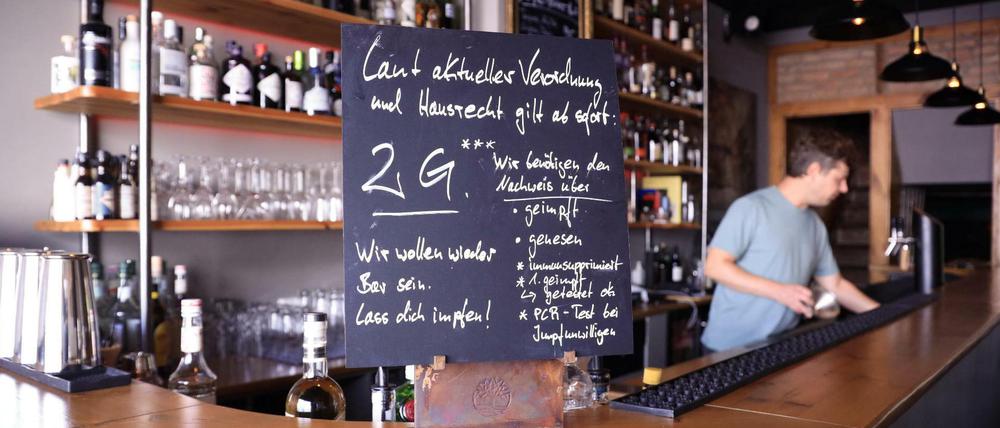 Laut aktueller Verordnung
und Hausrecht gilt ab sofort:
2G. ***
Wir wollen wieder
Bar sein.
Lass dich impfen!
Wir benötigen den
Nachweis über
• geimpft
• genesen
* immunsupprimiert
* 1. geimpft
↳ getestet ok
* PCR-Test bei
Impfunwilligen